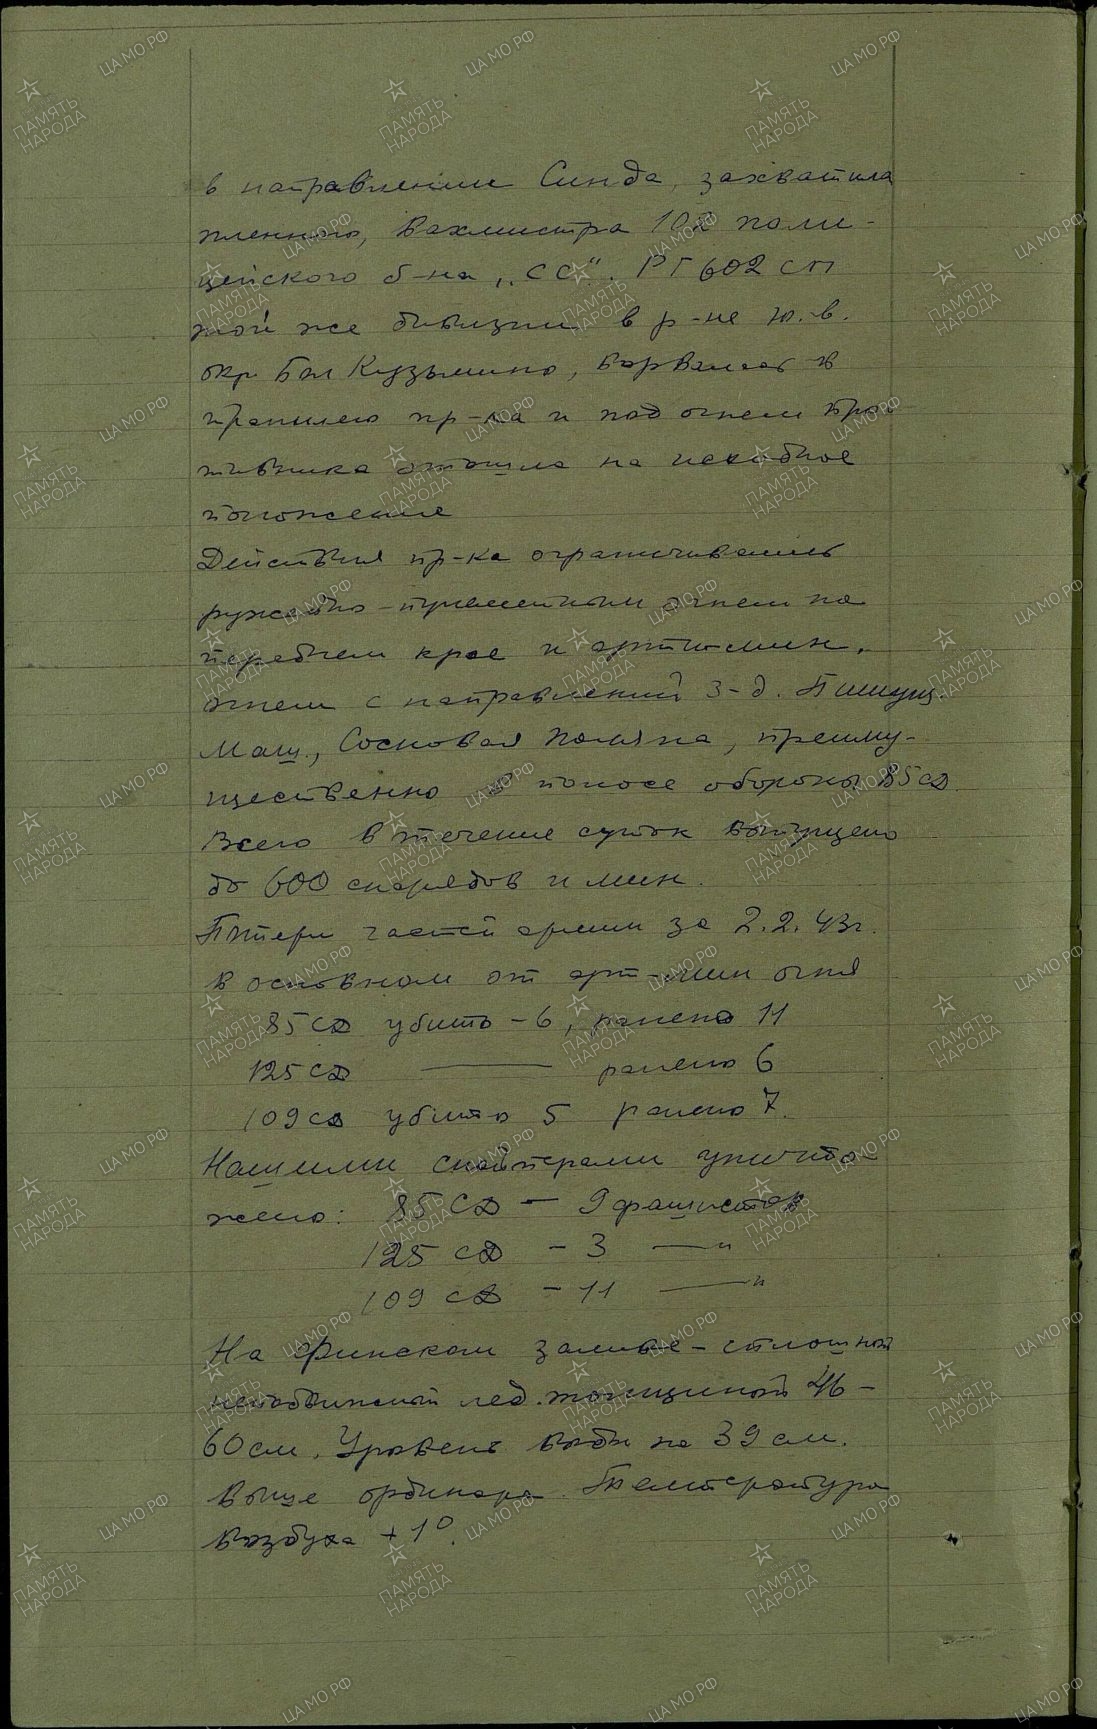 в направлении Синда, захватила
пленного, вахмистра 102 поли-
цейского б-на „СС“. РГ 602 сп
той же дивизии в р-не ю.-в.
окр. Бол Кузьмино, ворвалась в
траншею пр-ка и под огнем про-
тивника отошла на исходное
положение
Действия пр-ка ограничивались
ружейно-пулеметным огнем на
переднем крае и арт-мин.
огнем с направлений з-д. Пишущ.
Маш., Сосновая Поляна, преиму-
щественно в полосе обороны 85 СД.
Всего в течение суток выпущено
до 600 снарядов и мин.
Потери частей армии за 2.2.43г.
в основном от арт-мин огня
85 СД убито - 6, ранено 11
125 СД —— ранено 6
109 СД убито 5 ранено 7.
Нашими снайперами уничто-
жено: 85 СД - 9 фашистов
125 СД - 3 —"
109 СД - 11 —"
На Финском заливе - сплошной
неподвижный лед толщиной 46-
60 см. Уровень воды на 39 см.
выше ординара. Температура
воздуха +1°.